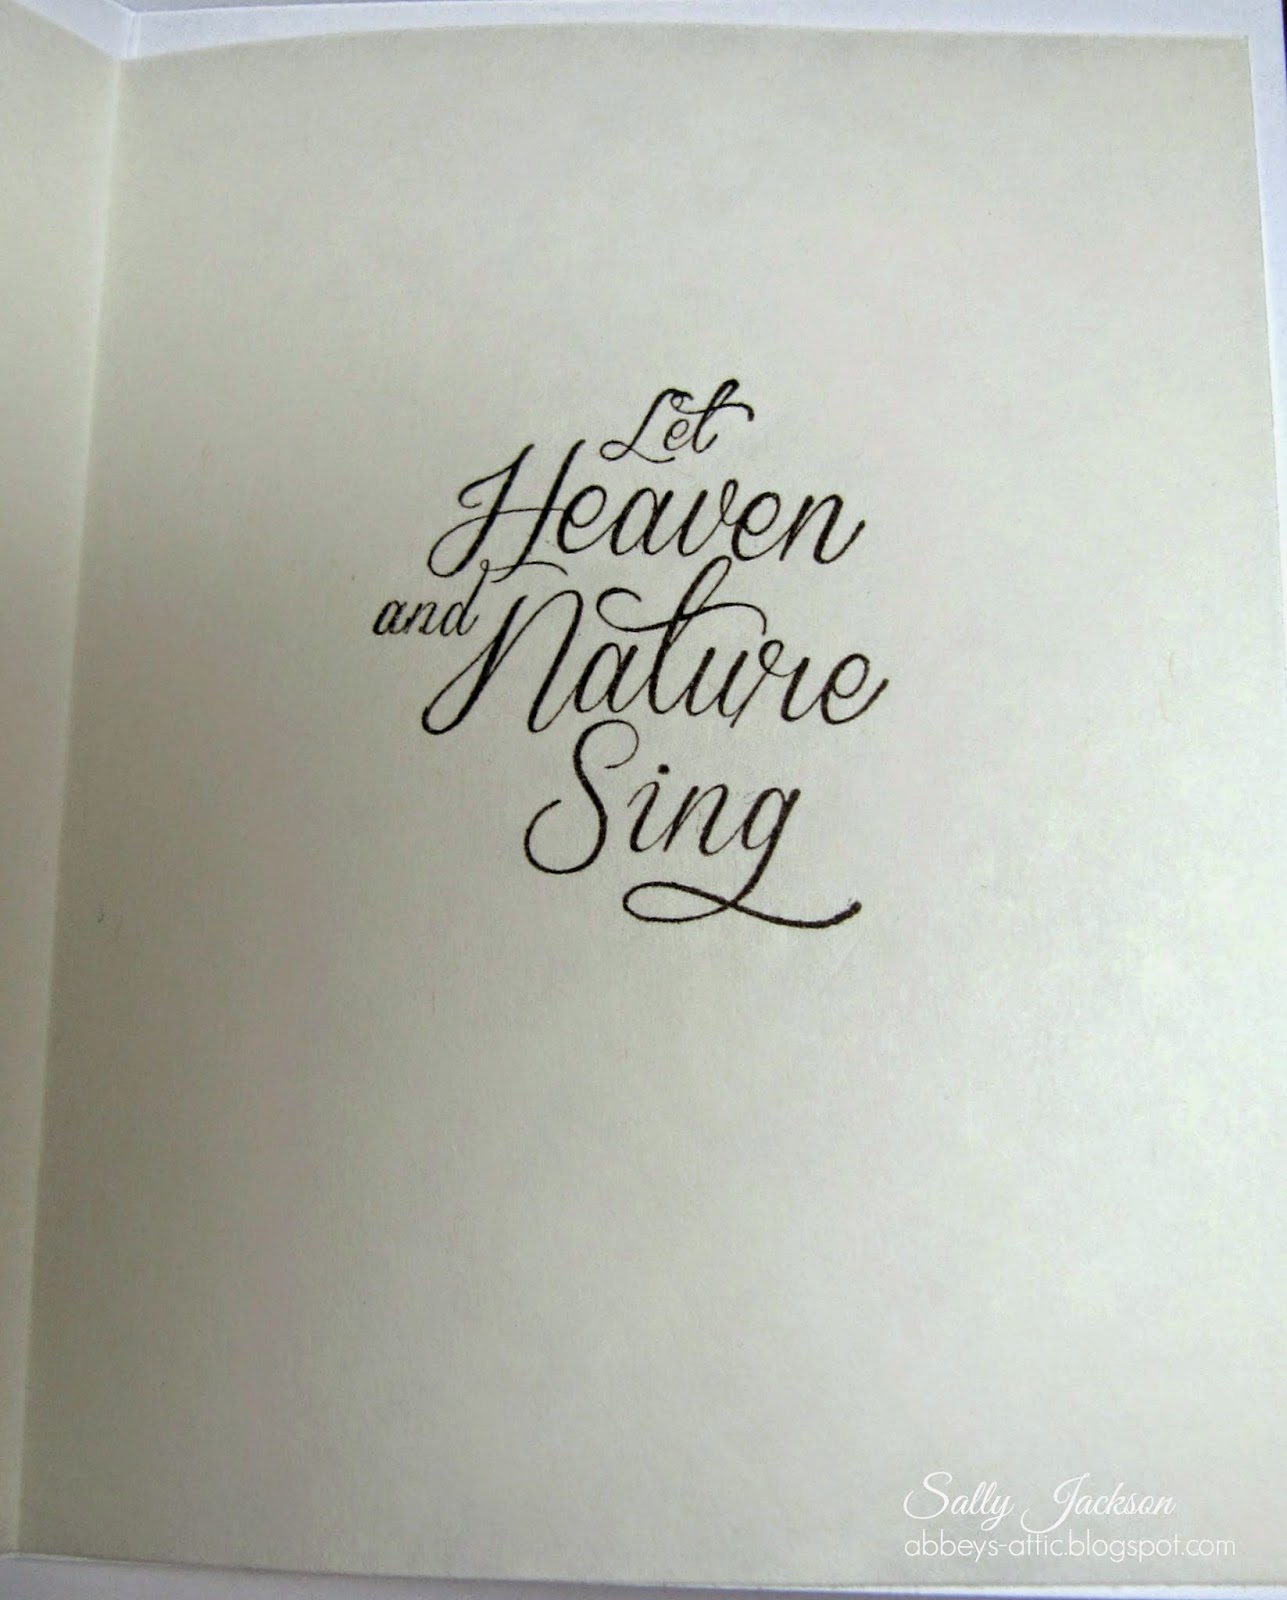 Let
Heaven
and Nature
Sing
Sally Jackson
abbeys-attic.blogspot.com